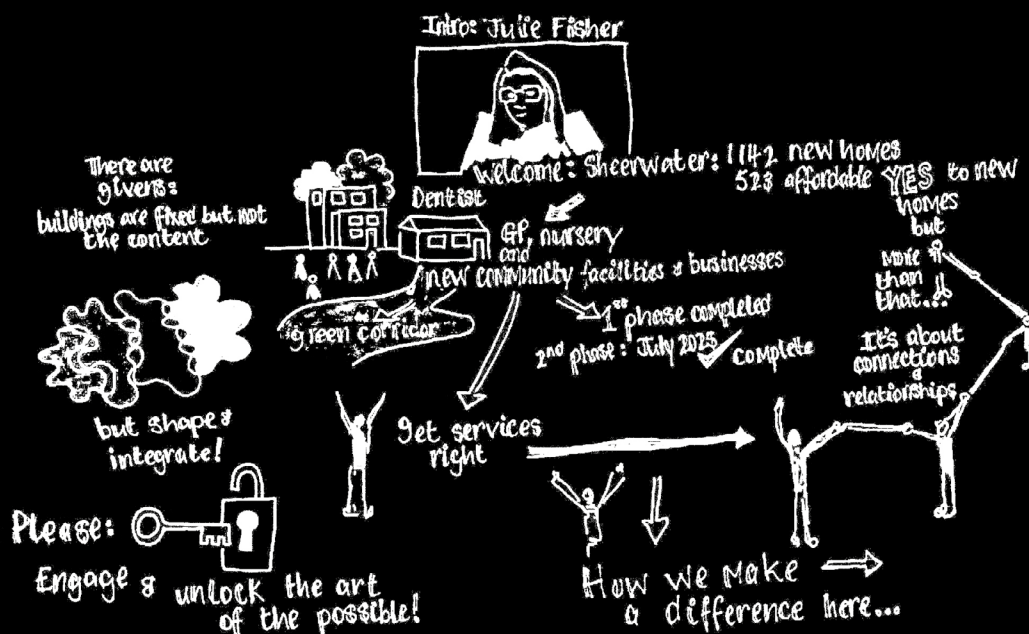 Intro: Julie Fisher
Welcome: Sheerwater: 1142 new homes
523 affordable
YES to new
homes
but
More
than
that...!!
It's about
connections
&
relationships
There are
givens:
buildings are fixed but not
the content
Dentist
GP, nursery
and
new community facilities & businesses
green corridor
1st phase completed
2nd phase: July 2025 complete
but shape &
integrate!
get services
right
Please:
Engage & unlock the art
of the possible!
How we make
a difference here...